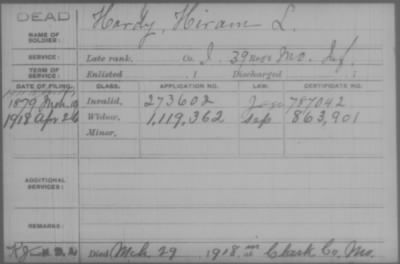 DEAD
NAME OF SOLDIER: Hardy, Hiram L.
SERVICE: Late rank, Co. I. 39 Mo. Inf.
TERM OF SERVICE: Enlisted , 1 Discharged , 1
DATE OF FILING. CLASS. APPLICATION NO. LAW. CERTIFICATE NO.
1879 Mch Invalid, 273602 787042
1918 Apr 26 Widow, 1,119,362 Sep 863,901
Minor,
ADDITIONAL SERVICES:
REMARKS:
Died Mch 29 1918 at Clark Co, Mo.